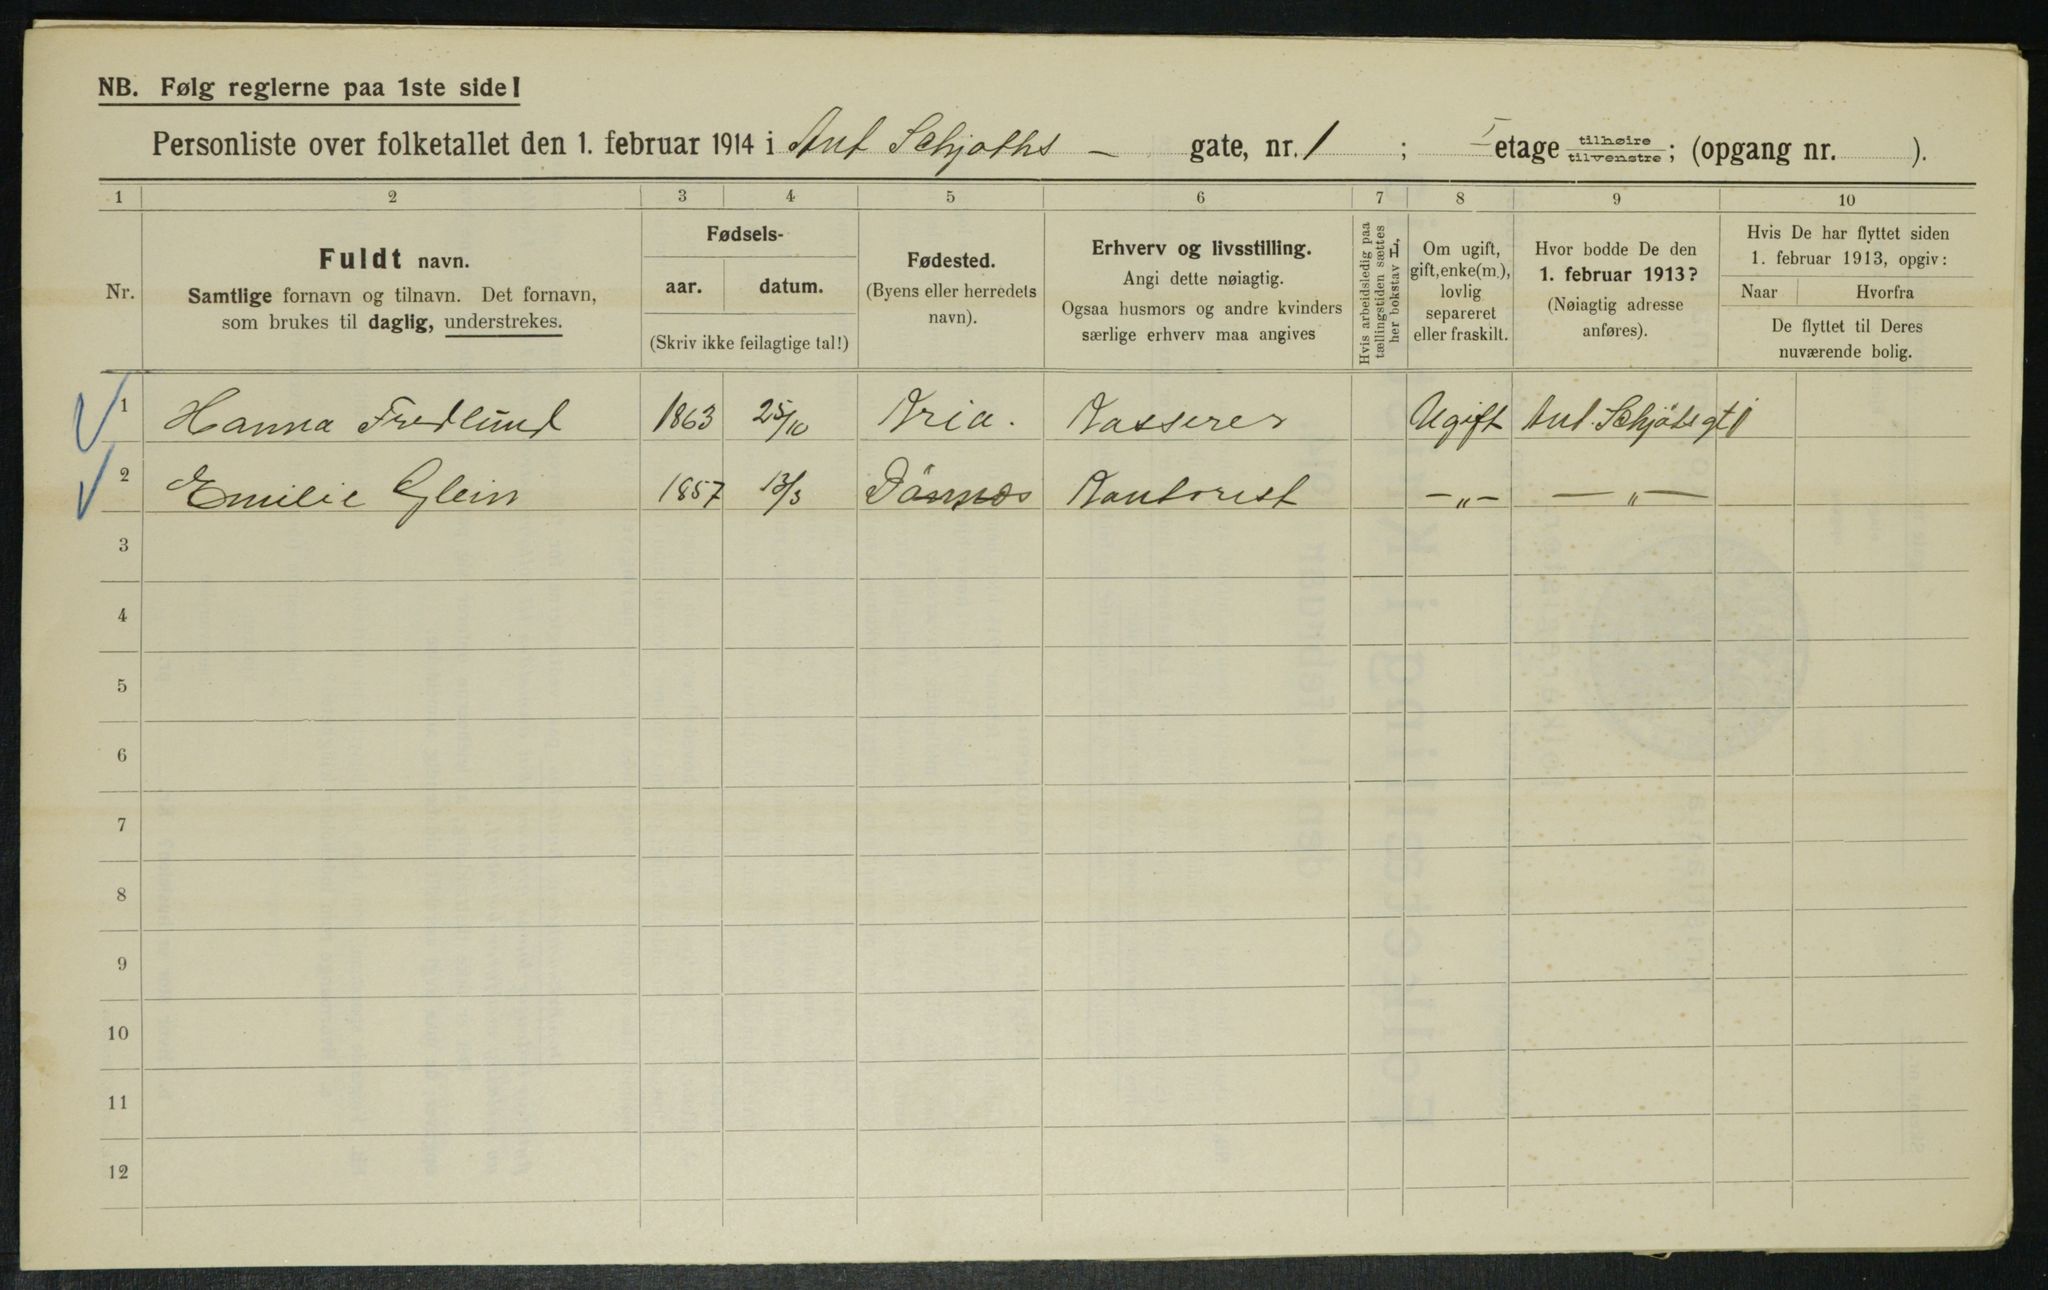 NB. Følg reglerne paa 1ste side!
Personliste over folketallet den 1. februar 1914 i Ant Schjøths – gate, nr. 1 ; I etage tilhøire tilvenstre; (opgang nr. ).
1 2 3 4 5 6 7 8 9 10
Nr.
Fuldt navn.
Samtlige fornavn og tilnavn. Det fornavn,
som brukes til daglig, understrekes.
Fødsels-
aar. datum.
(Skriv ikke feilagtige tal!)
Fødested.
(Byens eller herredets
navn).
Erhverv og livsstilling.
Angi dette nøiagtig.
Ogsaa husmors og andre kvinders
særlige erhverv maa angives
Hvis arbeidsledig paa
tællingstiden sættes
her bokstav L.
Om ugift,
gift, enke(m.),
lovlig
separeret
eller fraskilt.
Hvor bodde De den
1. februar 1913?
(Nøiagtig adresse
anføres).
Hvis De har flyttet siden
1. februar 1913, opgiv:
Naar Hvorfra
De flyttet til Deres
nuværende bolig.
1 Hanna Fredlund 1863 25/10 Kria. Kasserer Ugift Ant. Schjøtsgt 1
2 Emilie Glein 1857 13/3 Dönnæs Kontorist –„– –„–
3
4
5
6
7
8
9
10
11
12